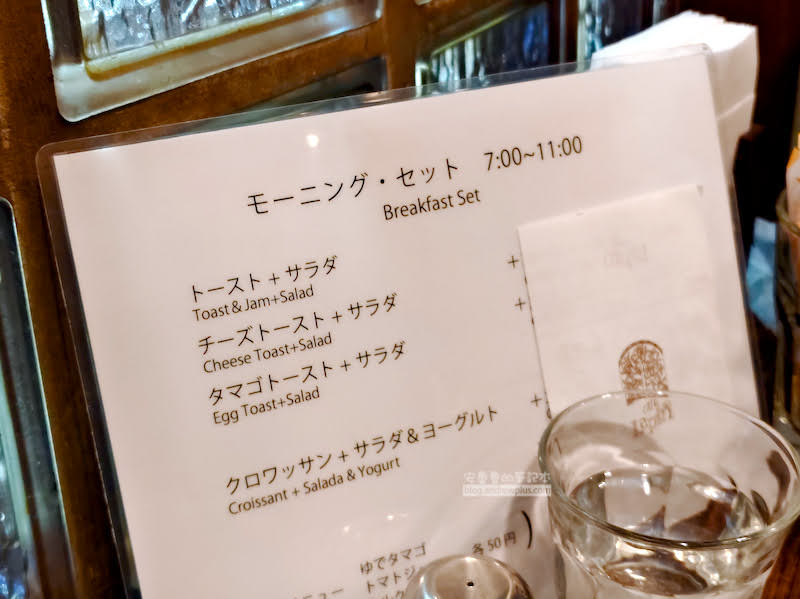 モーニング・セット 7:00~11:00
Breakfast Set
トースト + サラダ +
Toast & Jam+Salad
チーズトースト + サラダ +
Cheese Toast+Salad
タマゴトースト + サラダ
Egg Toast+Salad
クロワッサン + サラダ & ヨーグルト +
Croissant + Salada & Yogurt
ゆでタマゴ 各 50 円 )
ニュー トマトジ
安曼曼的筆記本
blog.andrewplus.com